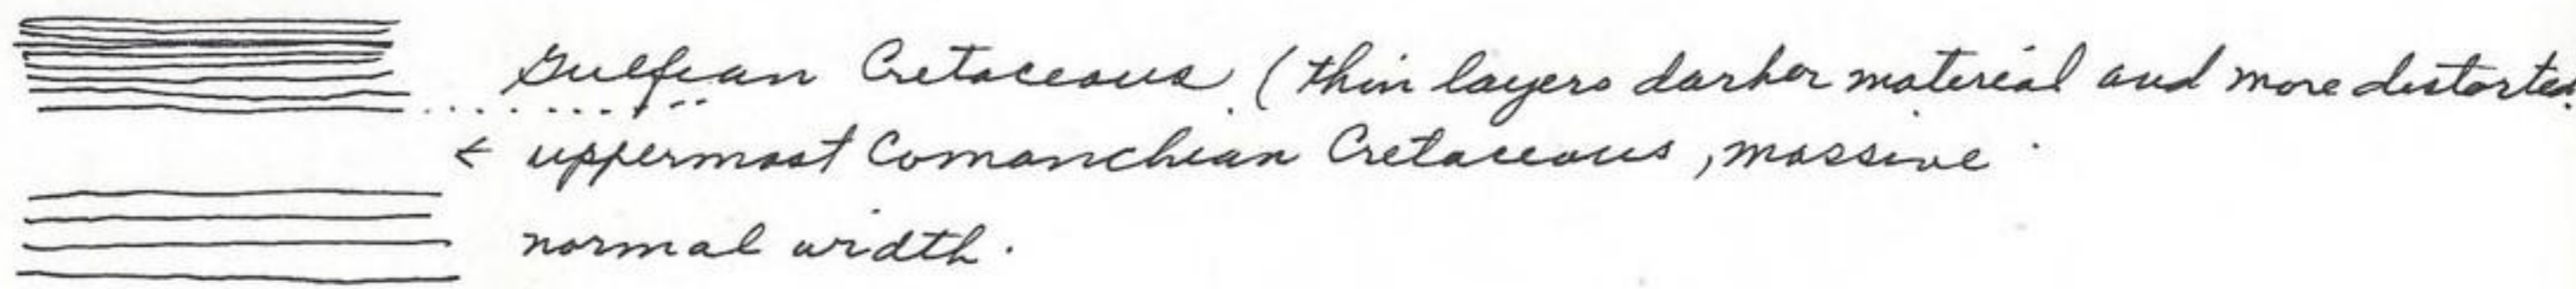 Gulfian Cretaceous (thin layers darker material and more distorted.
← uppermost Comanchean Cretaceous, massive
normal width.